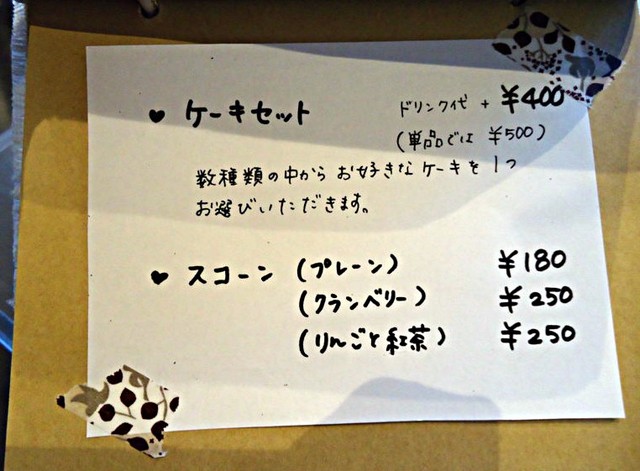 ♥ ケーキセット ドリンク代 + ¥400
(単品では ¥500)
数種類の中から お好きな ケーキを 1つ
お選びいただきます。
♥ スコーン (プレーン) ¥180
(クランベリー) ¥250
(りんごと紅茶) ¥250